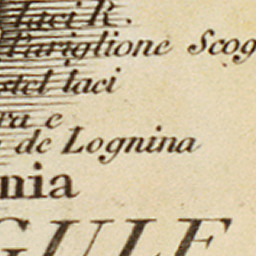 Iaci R.
Pariglione Scog
stel Iaci
ra e
de Lognina
nia
GULF